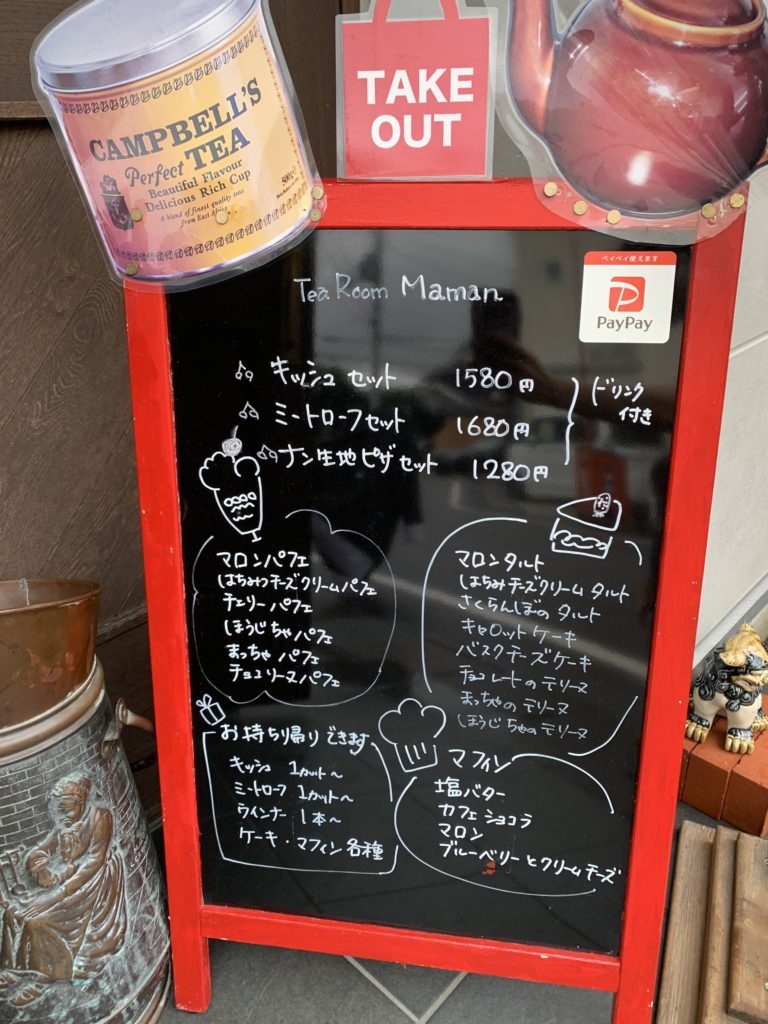 CAMPBELL'S
Perfect TEA
Beautiful Flavour
Delicious Rich Cup
A blend of finest quality teas
from East Africa
TAKE
OUT
ペイペイ使えます
PayPay
Tea Room Maman
キッシュ セット 1580円
ミートローフセット 1680円
ナン生地ピザセット 1280円
ドリンク
付き
マロンパフェ
はちみつチーズクリームパフェ
チェリーパフェ
ほうじちゃパフェ
まっちゃパフェ
チョコリーヌパフェ
マロンタルト
はちみチーズクリームタルト
さくらんぼのタルト
キャロットケーキ
バスクチーズケーキ
チョコレートのテリーヌ
まっちゃのテリーヌ
ほうじちゃのテリーヌ
お持ち帰りできます
キッシュ 1カット〜
ミートローフ 1カット〜
ウインナー 1本〜
ケーキ・マフィン各種
マフィン
塩バター
カフェショコラ
マロン
ブルーベリーとクリームチーズ